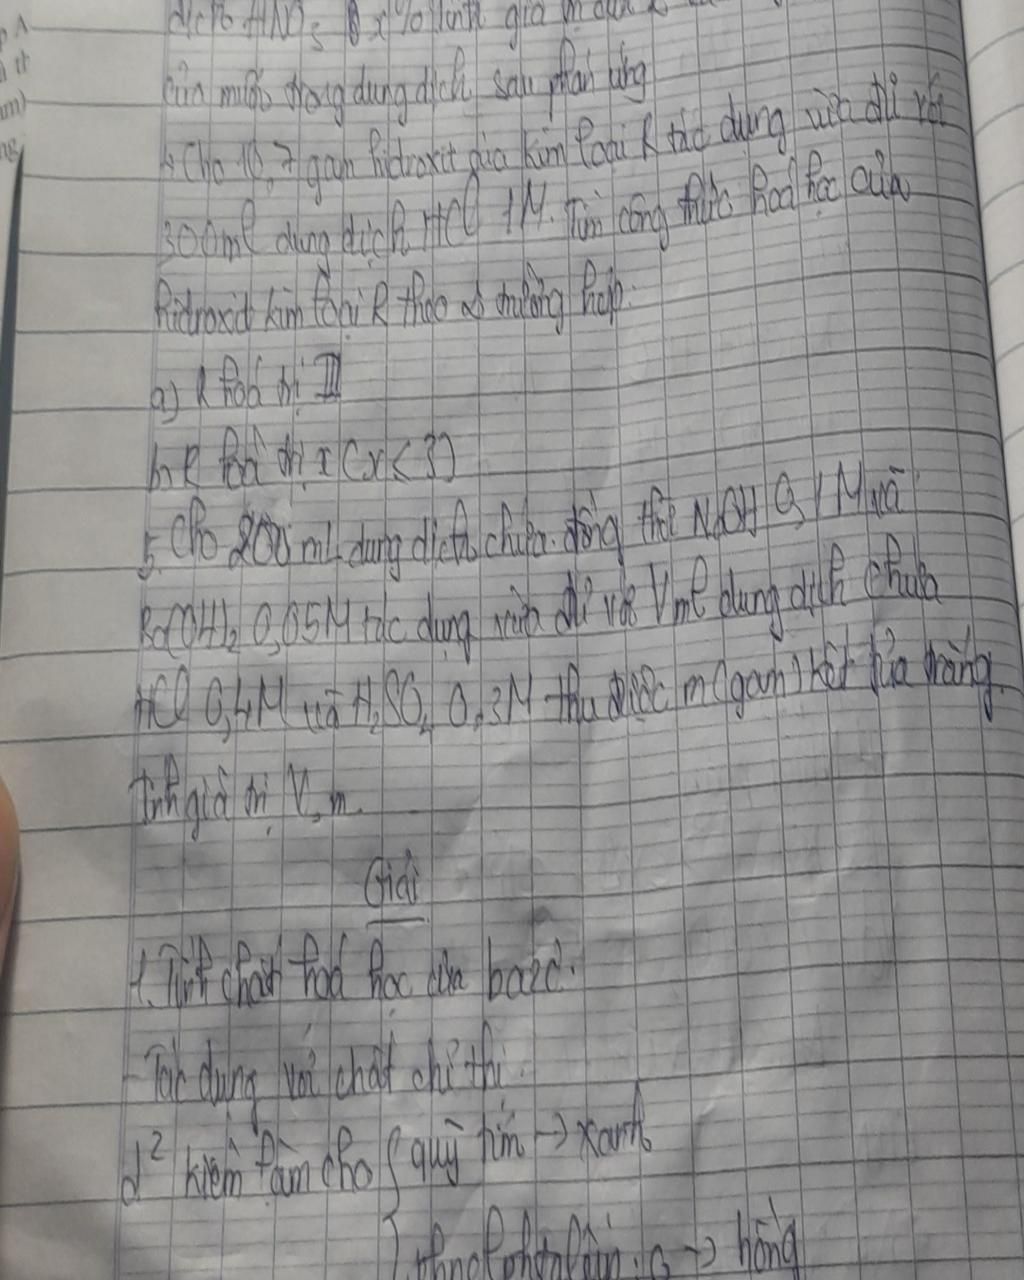 dịch HNO3 x% tính giá
của muối trong dung dịch sau phản ứng
4. Cho 10,7 gam hidroxit của kim loại R tác dụng vừa đủ với
300ml dung dịch HCl 1M. Tìm công thức hoá học của
hidroxit kim loại R theo 2 trường hợp:
a) R hoá trị III
b, R hoá trị x (x<3)
5. Cho 200 ml dung dịch chứa đồng thời NaOH 0,1M và
Ba(OH)2 0,05M tác dụng vừa đủ với Vml dung dịch chứa
HCl 0,4M và H2SO4 0,3M thu được m (gam) kết tủa trắng.
Tính giá trị V, m.
Giải
1. Tính chất hoá học của bazơ.
- Tác dụng với chất chỉ thị.
d² kiềm làm cho { quỳ tím → xanh
→ hồng